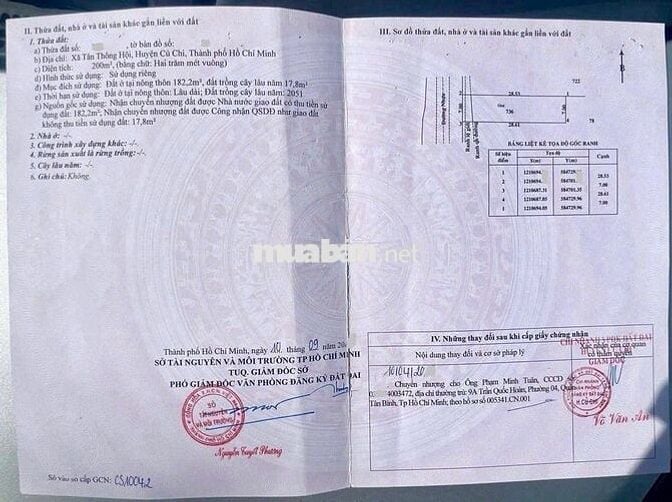 II. Thửa đất, nhà ở và tài sản khác gắn liền với đất
1. Thửa đất:
a) Thửa đất số: , tờ bản đồ số:
b) Địa chỉ: Xã Tân Thông Hội, Huyện Củ Chi, Thành phố Hồ Chí Minh
c) Diện tích: 200m², (bằng chữ: Hai trăm mét vuông)
d) Hình thức sử dụng: Sử dụng riêng
đ) Mục đích sử dụng: Đất ở tại nông thôn 182,2m², đất trồng cây lâu năm 17,8m²
e) Thời hạn sử dụng: Đất ở tại nông thôn: Lâu dài; Đất trồng cây lâu năm: 2051
g) Nguồn gốc sử dụng: Nhận chuyển nhượng đất được Nhà nước giao đất có thu tiền sử
dụng đất: 182,2m²; Nhận chuyển nhượng đất được Công nhận QSDĐ như giao đất
không thu tiền sử dụng đất: 17,8m²
2. Nhà ở: -/-
3. Công trình xây dựng khác: -/-
4. Rừng sản xuất là rừng trồng: -/-
5. Cây lâu năm: -/-
6. Ghi chú: Không.
Thành phố Hồ Chí Minh, ngày 10 tháng 09 năm 20
SỞ TÀI NGUYÊN VÀ MÔI TRƯỜNG TP HỒ CHÍ MINH
TUQ. GIÁM ĐỐC SỞ
PHÓ GIÁM ĐỐC VĂN PHÒNG ĐĂNG KÝ ĐẤT ĐAI
SỞ
TÀI NGUYÊN
VÀ MÔI TRƯỜNG
Nguyễn Tuyết Phương
Số vào sổ cấp GCN: CS10042
muaban.net
III. Sơ đồ thửa đất, nhà ở và tài sản khác gắn liền với đất
722
28.53
Đường Nhựa
7.00
736
7.00
28.61
78
Ranh lộ giới
BẢNG LIỆT KÊ TỌA ĐỘ GÓC RANH
Số hiệu điểm Tọa độ Cạnh
X(m) Y(m)
1 1210694. 584729.
28.53
2 1210694. 584701.
7.00
3 1210687.31 584701.35
28.61
4 1210687.05 584729.96
7.00
1 1210694.05 584729.96
IV. Những thay đổi sau khi cấp giấy chứng nhận
Nội dung thay đổi và cơ sở pháp lý
Xác nhận của cơ quan
có thẩm quyền
GIÁM ĐỐC
Chuyển nhượng cho Ông Phạm Minh Tuấn, CCCD
4003472, địa chỉ thường trú: 9A Trần Quốc Hoàn, Phường 04, Quận
Tân Bình, Tp Hồ Chí Minh; theo hồ sơ số 005341.CN.001
Võ Văn An